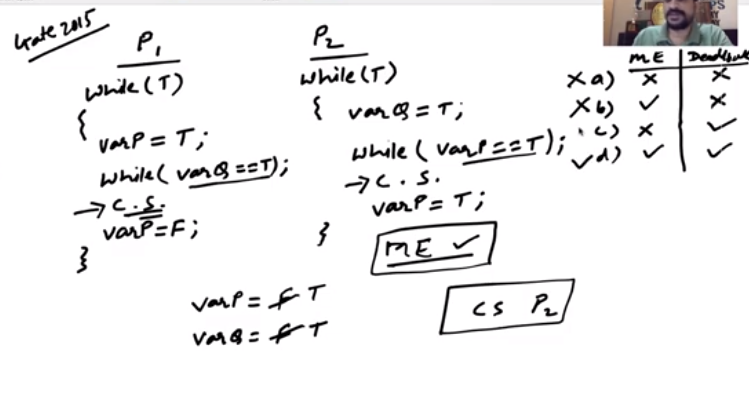 Gate 2015
P1
while(T)
{
varP = T;
while( varQ ==T);
→ C.S.
varP=F;
}
P2
while(T)
{ varQ = T;
while( varP==T);
→ C.S.
varP = T;
}
ME ✓
varP = F T
varQ = F T
CS P2
ME Deadlock
X a) X X
X b) ✓ X
c) X ✓
✓ d) ✓ ✓